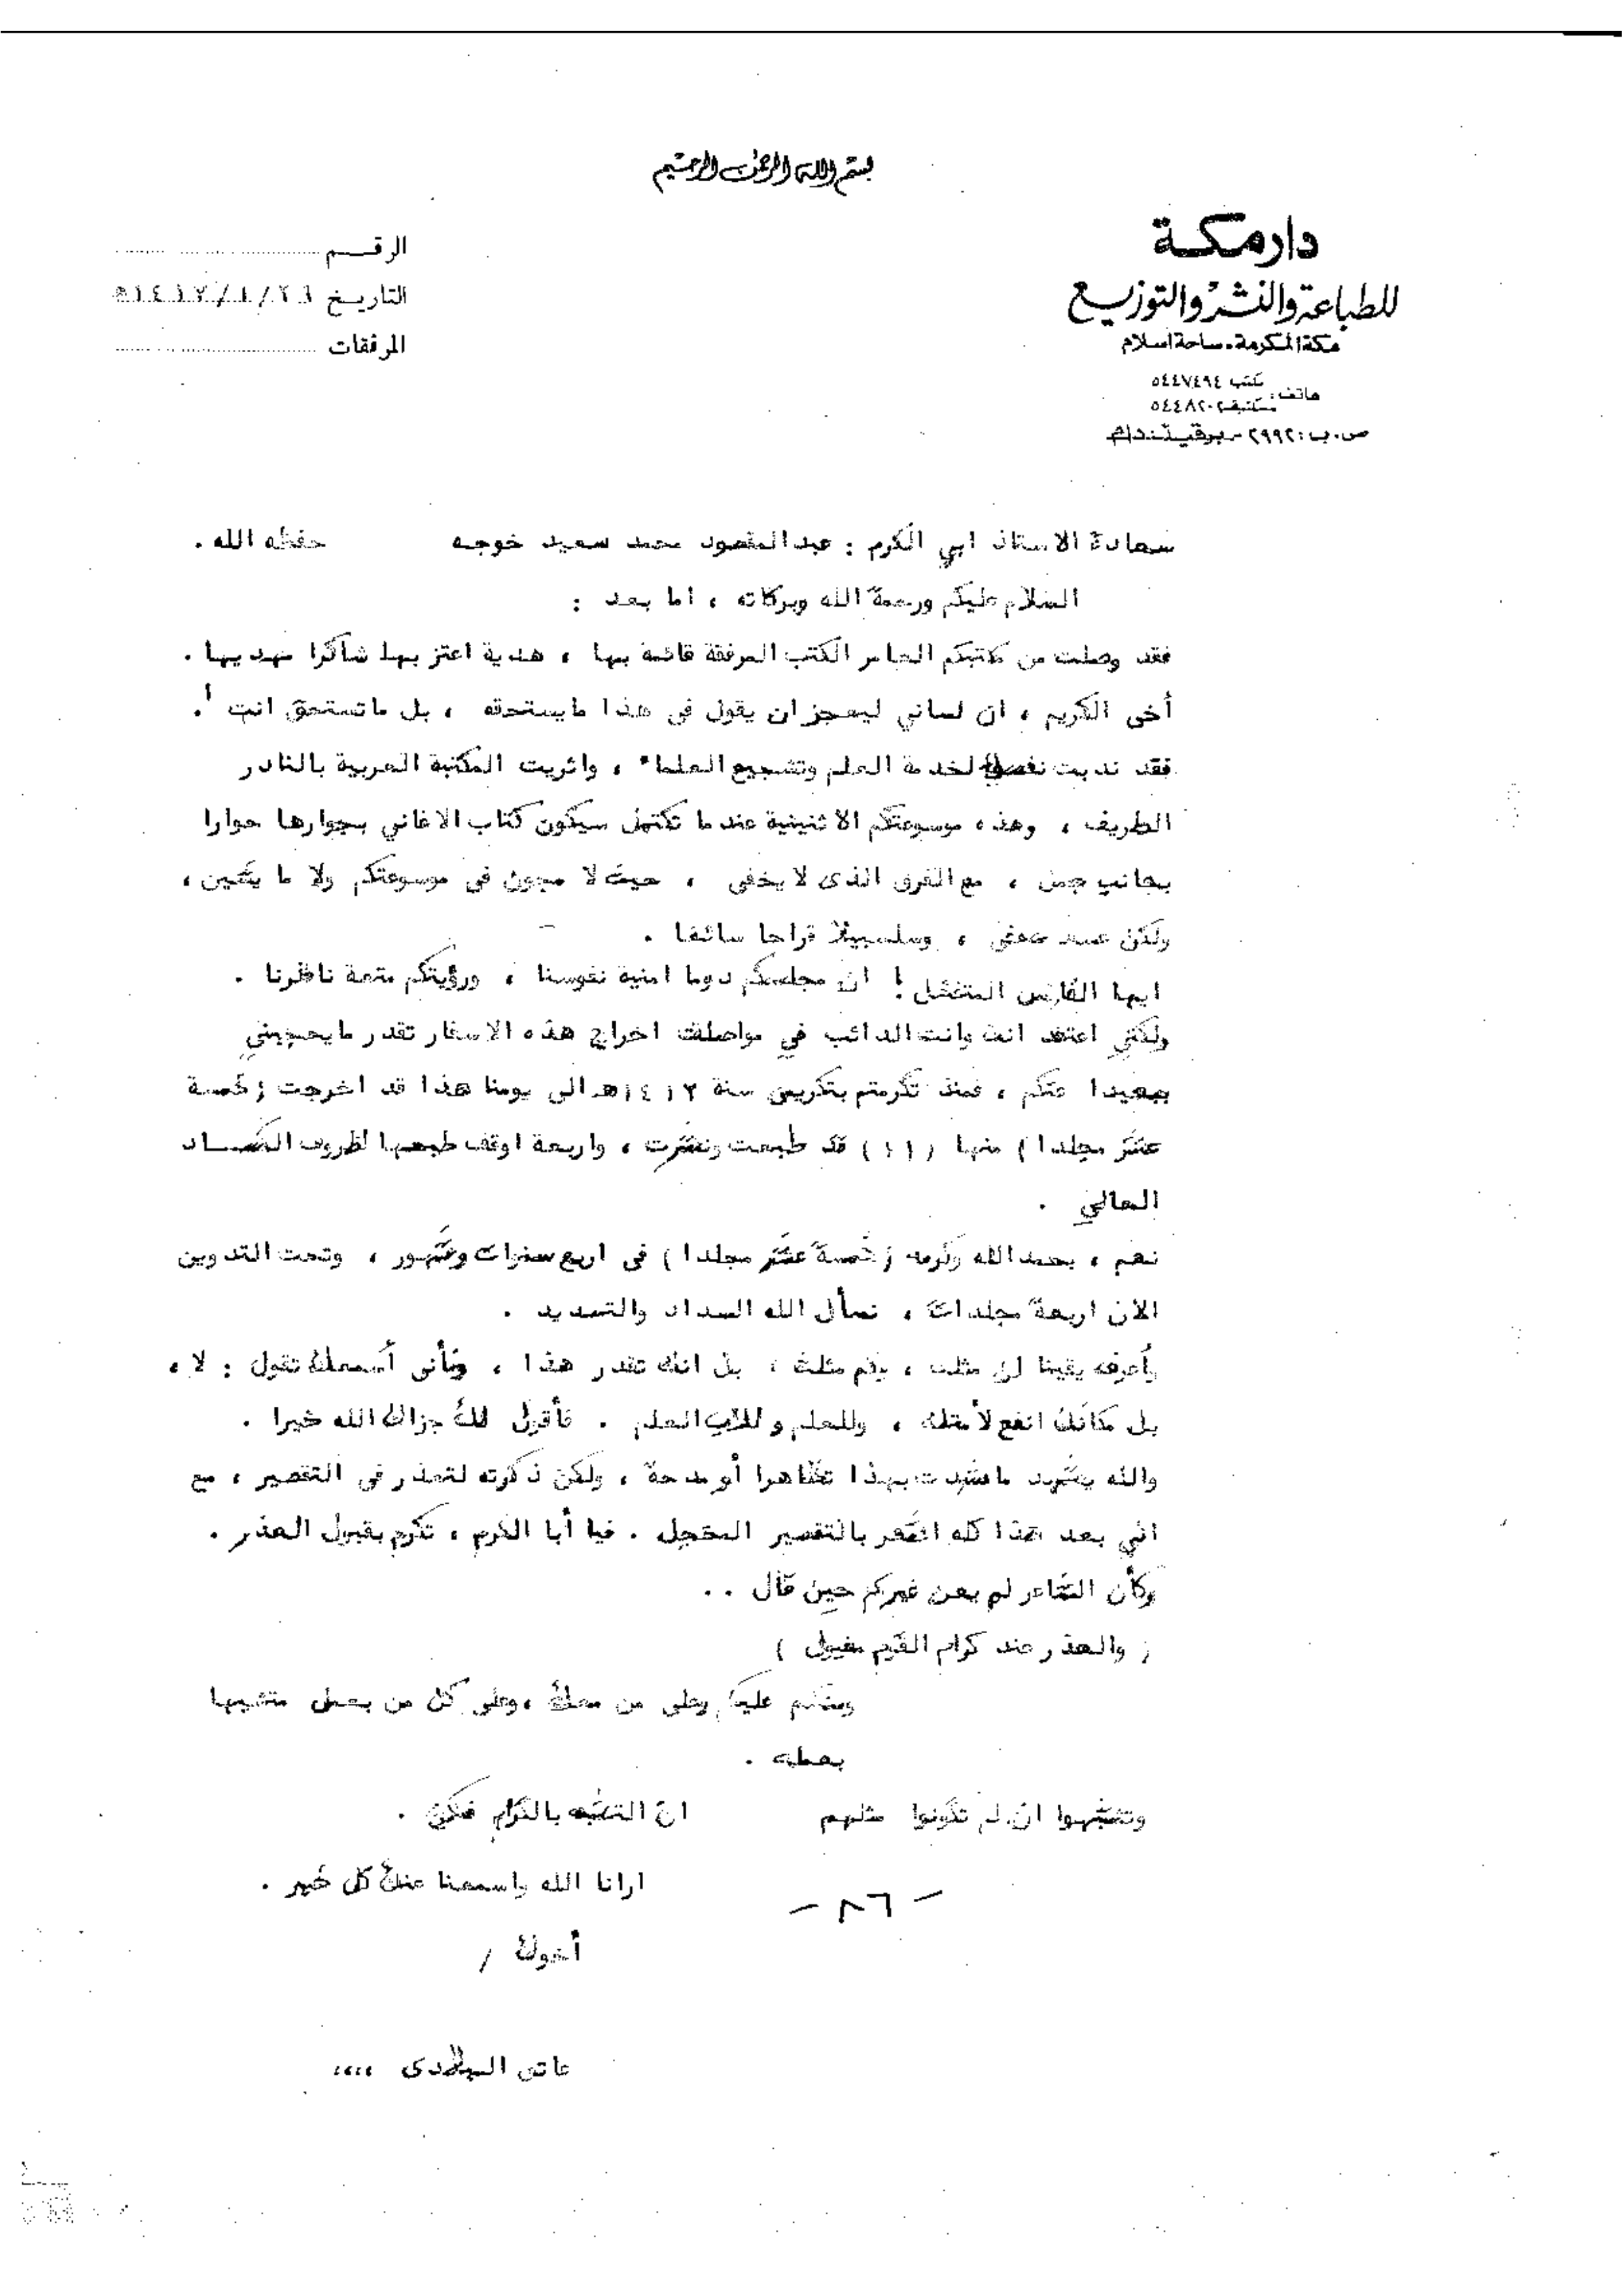 بسم الله الرحمن الرحيم
دار مكة
للطباعة والنشر والتوزيع
مكة المكرمة - ساحة اسلام
هاتف: مكتب ٥٤٤٧٤٩٤
مكتبة ٥٤٤٨٢٠٢
ص.ب: ٢٩٩٢ - برقيا: ندام
الرقم
التاريخ ٢٦ / ١ / ١٤١٧ه
المرفقات
سعادة الاستاذ ابي الكرم : عبدالمقصود محمد سعيد خوجه حفظه الله .
السلام عليكم ورحمة الله وبركاته ، اما بعد :
فقد وصلت من مكتبكم العامر الكتب المرفقة قائمة بها ، هدية اعتز بها شاكرا مهديها .
أخى الكريم ، ان لساني ليعجز ان يقول فى هذا مايستحقه ، بل ماتستحق انت !.
فقد ندبت نفسك لخدمة العلم وتشجيع العلماء ، واثريت المكتبة العربية بالنادر
الطريف ، وهذه موسوعتكم الاثنينية عندما تكتمل سيكون كتاب الاغاني بجوارها حوارا
بجانب جمل ، مع الفرق الذى لايخفى ، حيث لا مجون فى موسوعتكم ولا ما يشين ،
ولكن عسل مصفى ، وسلسبيلا قراحا سائغا .
ايها الفارس المتفضل ! ان مجلسكم دوما امنية نفوسنا ، ورؤيتكم متعة ناظرنا .
ولكني اعتقد انك وانت الدائب في مواصلة اخراج هذه الاسفار تقدر مايحجبني
بعيدا عنكم ، فمنذ تكرمتم بتكريمى سنة ١٤١٢هـ الى يومنا هذا قد اخرجت (خمسة
عشر مجلدا) منها (١١) قد طبعت ونشرت ، واربعة اوقف طبعها لظروف الكساد
الحالي .
نعم ، بحمدالله وكرمه (خمسة عشر مجلدا) فى اربع سنوات وشهور ، وتحت التدوين
الان اربعة مجلدات ، نسأل الله السداد والتسديد .
وأعرفه يقينا لدى مثلك ، بل انك تقدر هذا ، وكأنى أسمعك تقول : لا ،
بل مكانك انفع لأمتك ، وللعلم ولطلاب العلم . فأقول لك جزاك الله خيرا .
والله يشهد ماسردت بهذا تظاهرا أو مدحة ، ولكن ذكرته لتعذر فى التقصير ، مع
اني بعد هذا كله اشعر بالتقصير المخجل . فيا أبا الكرم ، تكرم بقبول العذر .
وكأن الشاعر لم يعن غيركم حين قال ..
( والعذر عند كرام القوم مقبول )
وسلام عليكم وعلى من معك ، وعلى كل من يعمل متشبها
بعمله .
وتشبهوا ان لم تكونوا مثلهم ان التشبه بالكرام فلاح .
ارانا الله واسمعنا عنك كل خير .
- ٨٦ -
أخوك /
عاتق البلادى ،،،،